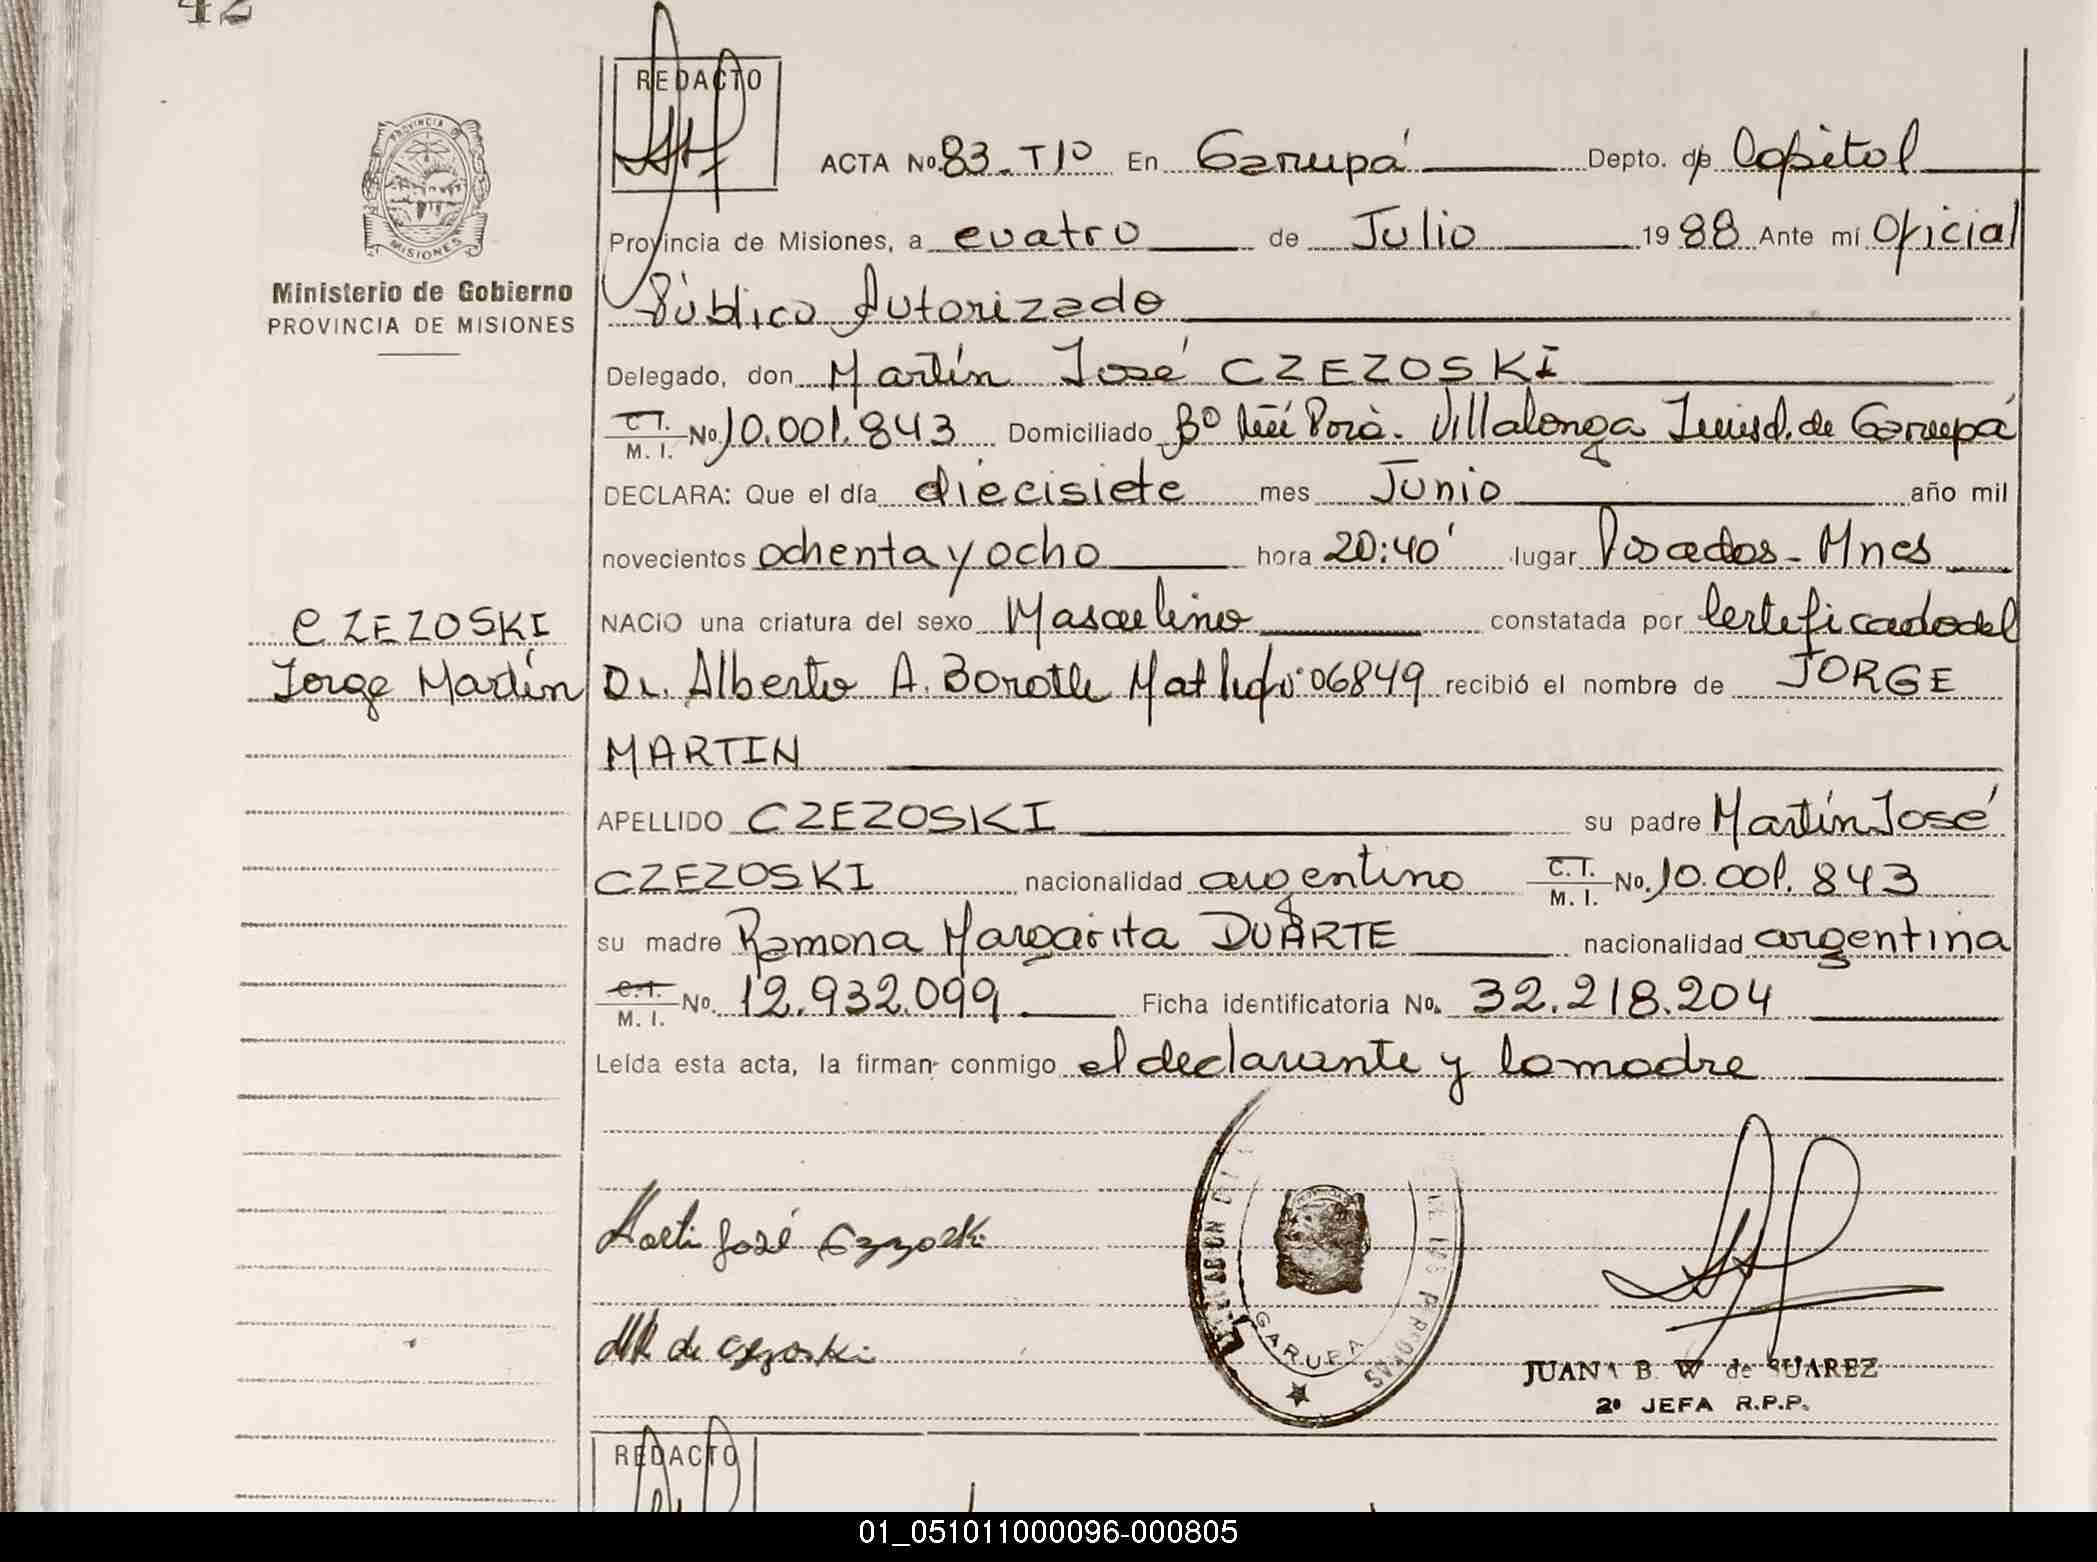 42
REDACTO
ACTA No. 83-Tº En Garupá Depto. de Capital
Provincia de Misiones, a cuatro de Julio 1988 Ante mi Oficial
Público Autorizado
PROVINCIA DE
MISIONES
Ministerio de Gobierno
PROVINCIA DE MISIONES
Delegado, don Martín José CZEZOSKI
C.I. M. I. No. 10.001.843 Domiciliado Bº Ñú Porá. Villalonga Jurisd. de Garupá
DECLARA: Que el día diecisiete mes Junio año mil
novecientos ochenta y ocho hora 20:40' lugar Posadas - Mnes
CZEZOSKI
Jorge Martín
NACIO una criatura del sexo Masculino constatada por Certificado del
Dr. Alberto A. 06849 recibió el nombre de JORGE
MARTIN
APELLIDO CZEZOSKI su padre Martín José
CZEZOSKI nacionalidad argentino C.I. M. I. No. 10.001.843
su madre Ramona Margarita DUARTE nacionalidad argentina
C.I. M. I. No. 12.932.099 Ficha identificatoria No. 32.218.204
Leída esta acta, la firman conmigo el declarante y la madre
José
de Czezoski
DE LAS PERSONAS
GARUPA
JUANA B. W de SUAREZ
2º JEFA R.P.P.
REDACTO
01_051011000096-000805